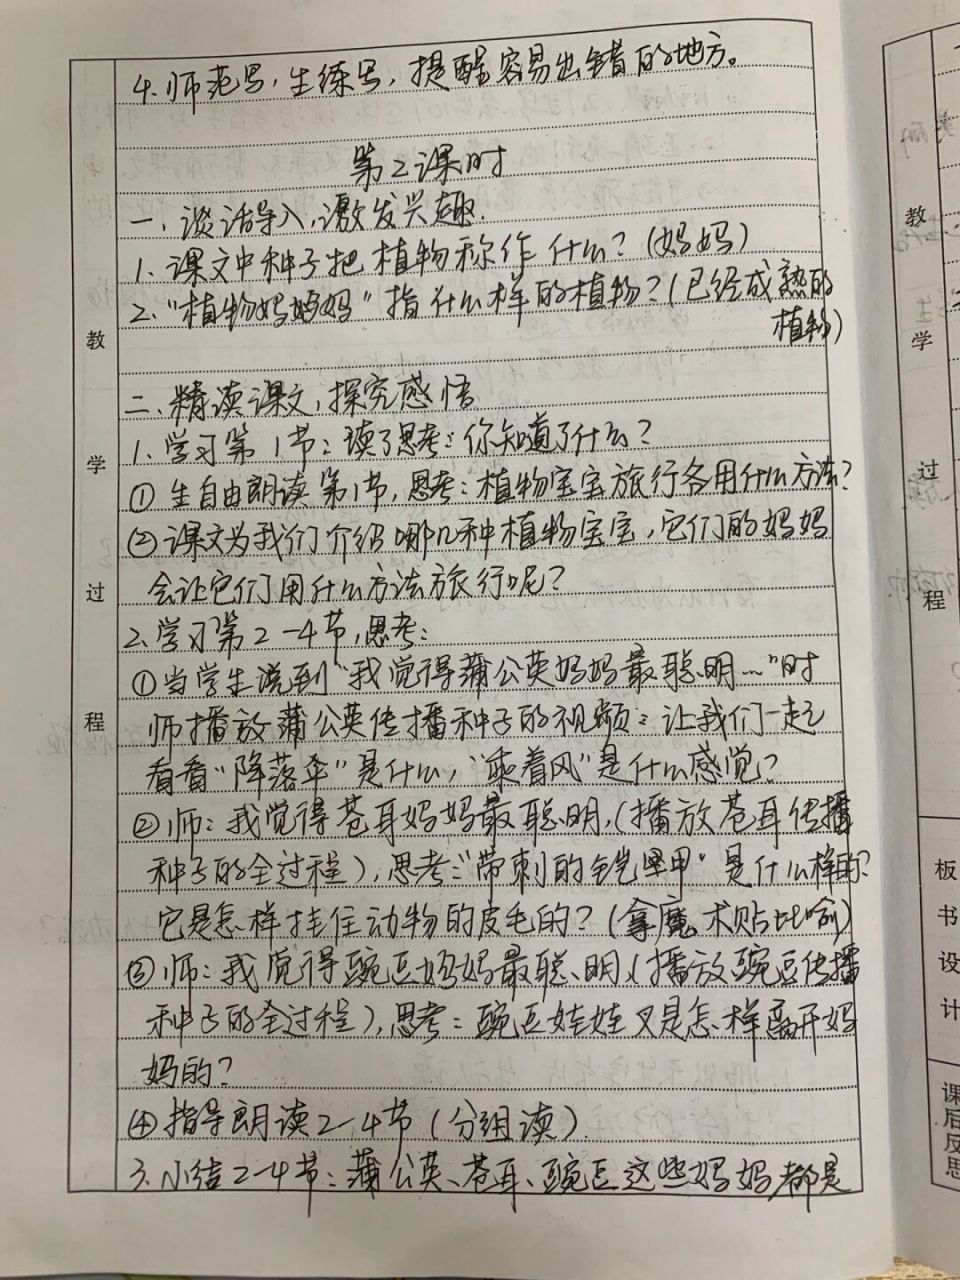 4.师范写,生练写,提醒容易出错的地方。
第2课时
一、谈话导入,激发兴趣.
1.课文中种子把植物称作什么?(妈妈)
2."植物妈妈"指什么样的植物?(已经成熟的
植物)
二、精读课文,探究感悟
1.学习第1节:读了思考:你知道了什么?
①生自由朗读第1节,思考:植物宝宝旅行各用什么方法?
②课文为我们介绍哪几种植物宝宝,它们的妈妈
会让它们用什么方法旅行呢?
2.学习第2-4节,思考:
①当学生说到"我觉得蒲公英妈妈最聪明…"时
师播放蒲公英传播种子的视频:让我们一起
看看"降落伞"是什么,"乘着风"是什么感觉?
②师:我觉得苍耳妈妈最聪明,(播放苍耳传播
种子的全过程),思考:"带刺的铠甲"是什么样的?
它是怎样挂住动物的皮毛的?(拿魔术贴比喻)
③师:我觉得豌豆妈妈最聪明(播放豌豆传播
种子的全过程),思考:豌豆娃娃又是怎样离开妈
妈的?
④指导朗读2-4节(分组读)
3.小结2-4节:蒲公英、苍耳、豌豆这些妈妈都是
教
学
过
程
教
学
过
程
板
书
设
计
课
后
反
思